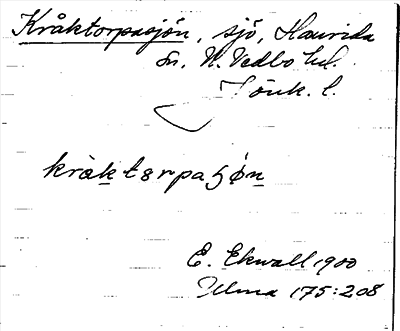 Kråktorpasjön, sjö, Haurida
sn. N. Vedbo hd.
Jönk. l.
kråktərpaʃøn
E. Ekwall 1900
Ulma 175:208